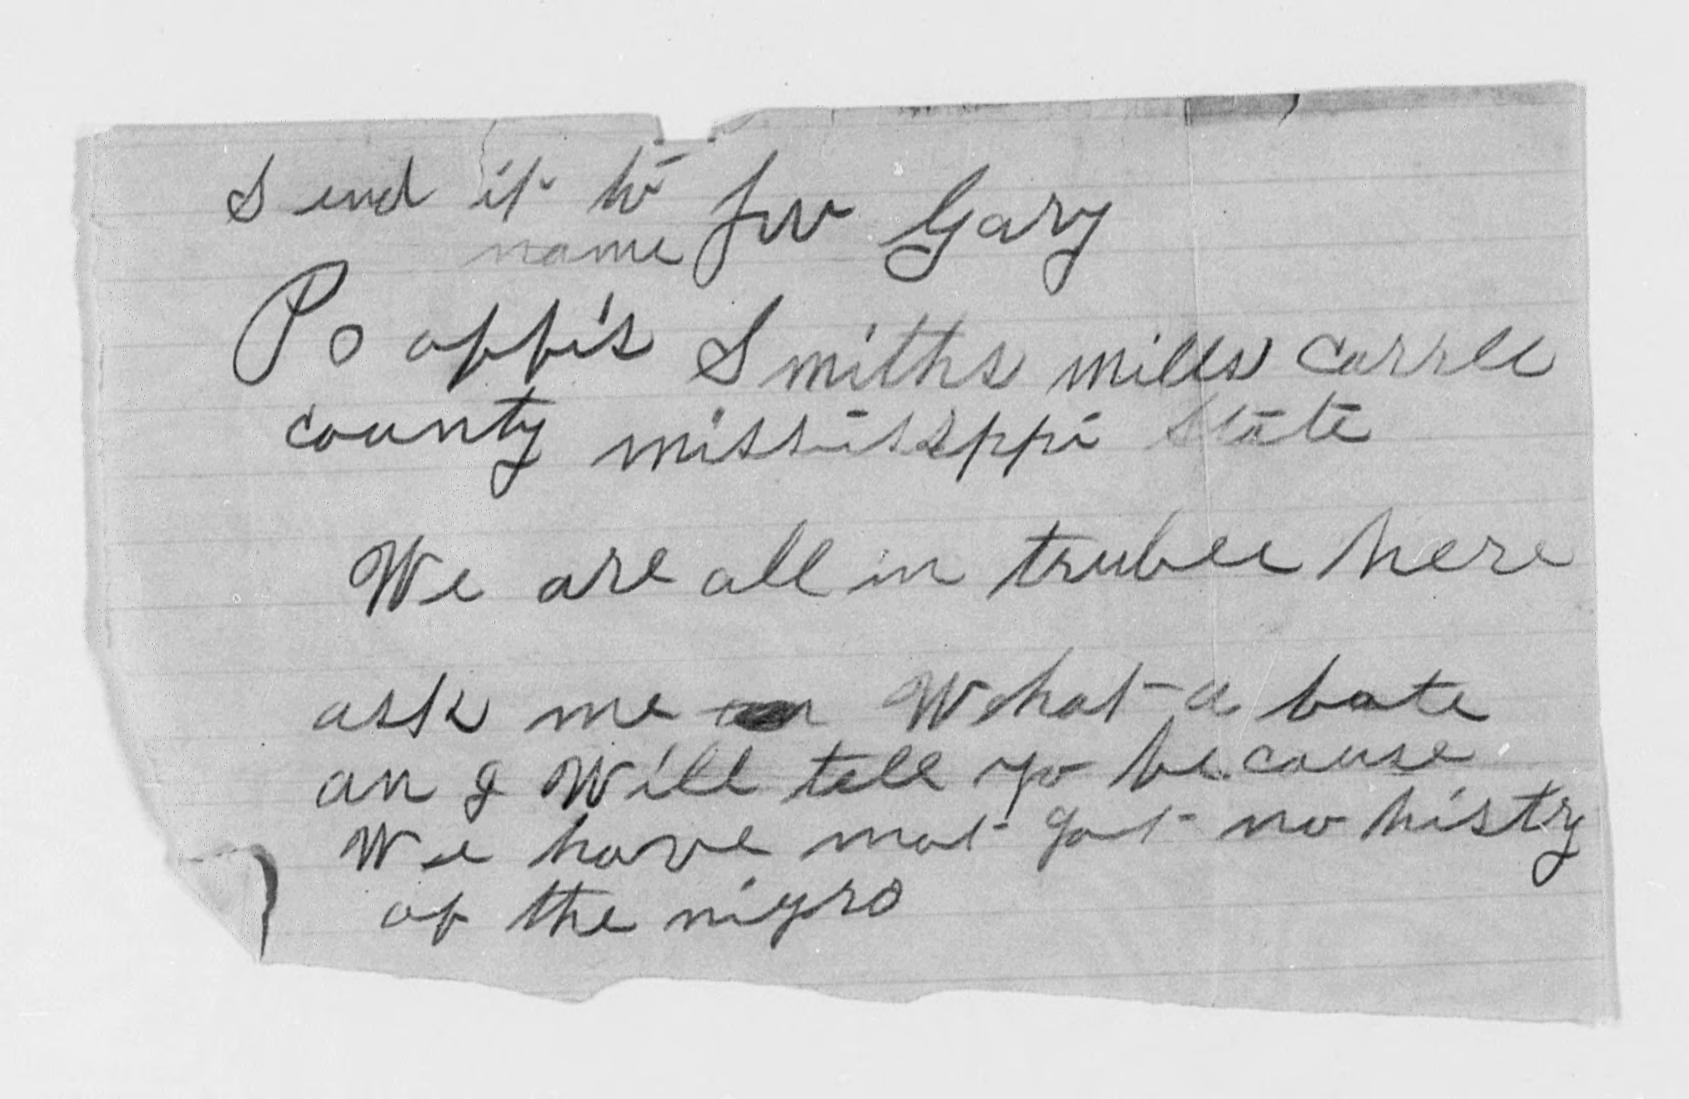 Send it to Joo Gary
name
Po offis Smiths mills Carrll
county mississppi State
We are all in trublee here
ask me What a bate
an I Will tell yo because
We have not got no histry
of the nigro